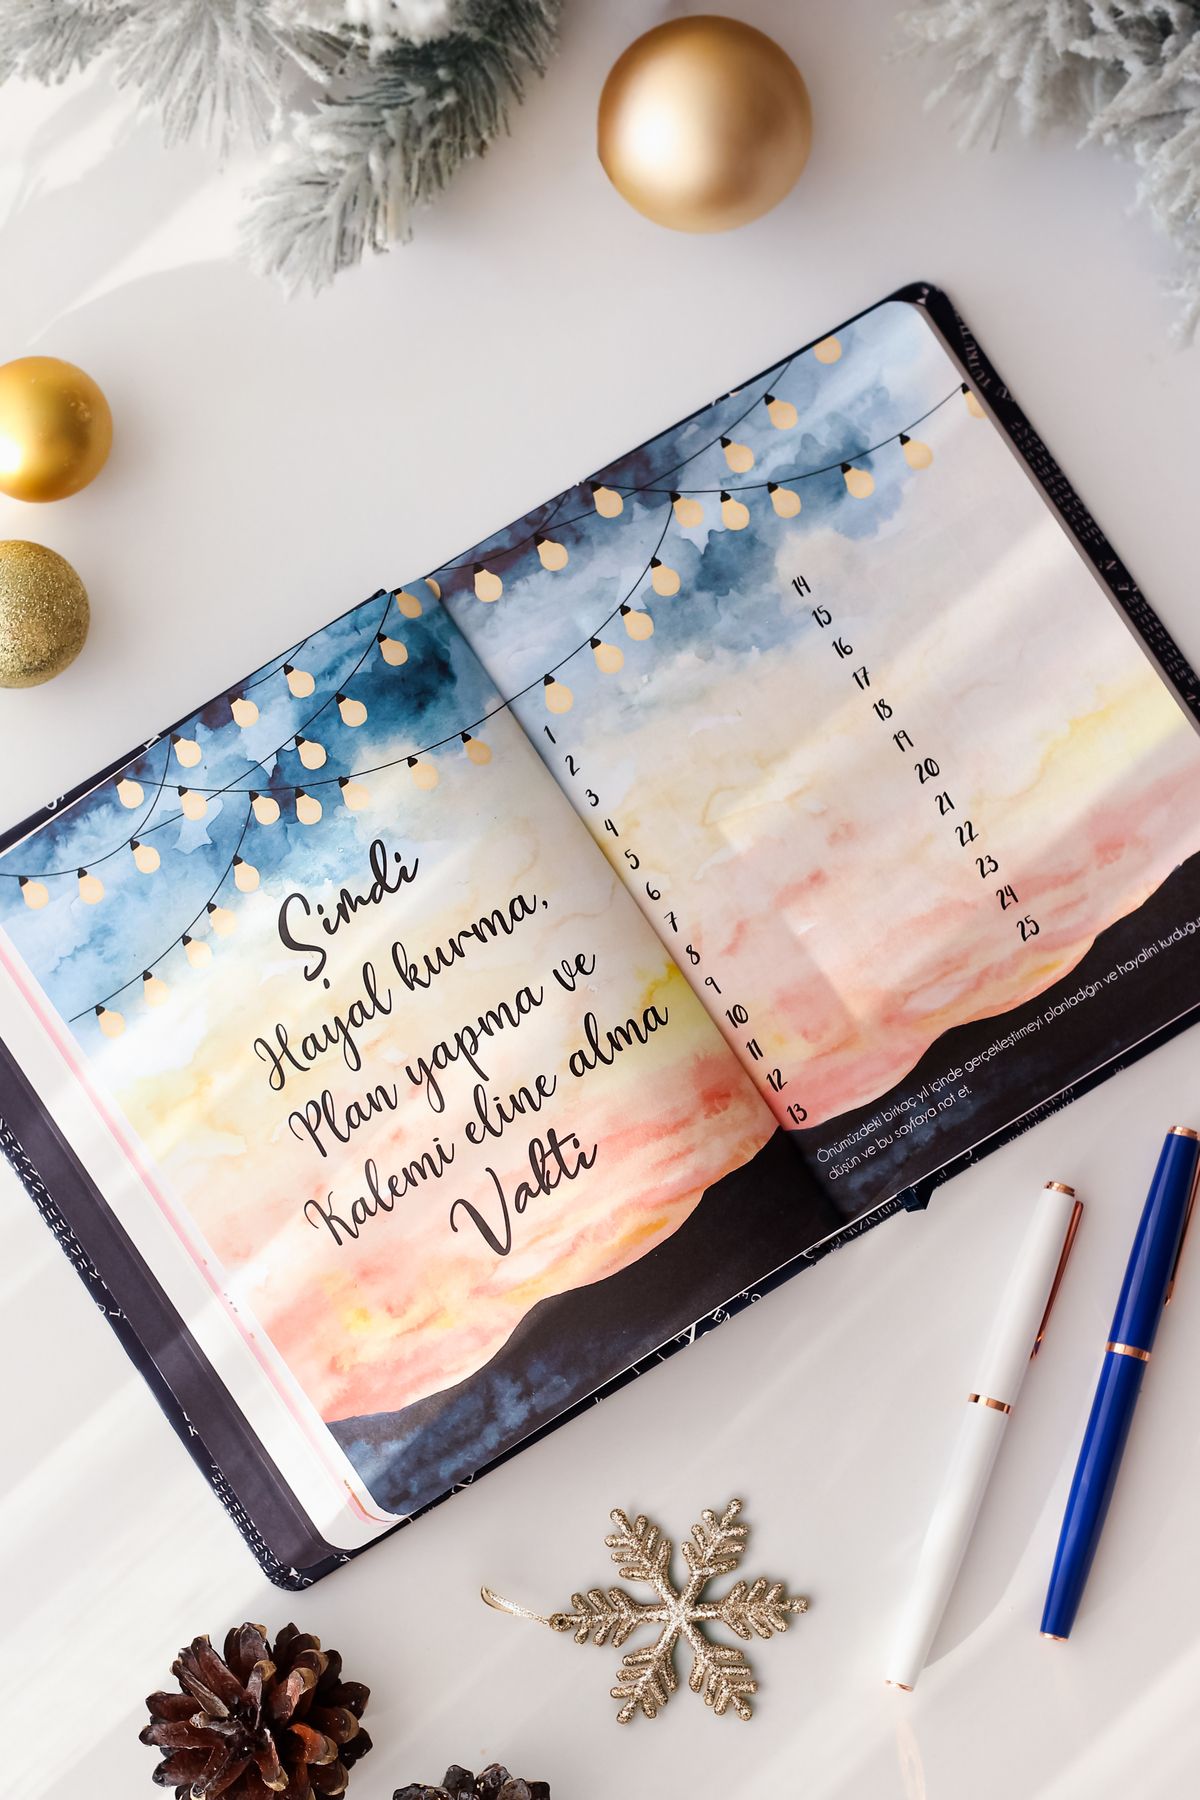 Şimdi
Hayal kurma,
Plan yapma ve
Kalemi eline alma
Vakti
1
2
3
4
5
6
7
8
9
10
11
12
13
14
15
16
17
18
19
20
21
22
23
24
25
Önümüzdeki birkaç yıl içinde gerçekleştirmeyi planladığın ve hayalini
düşün ve bu sayfaya not et.